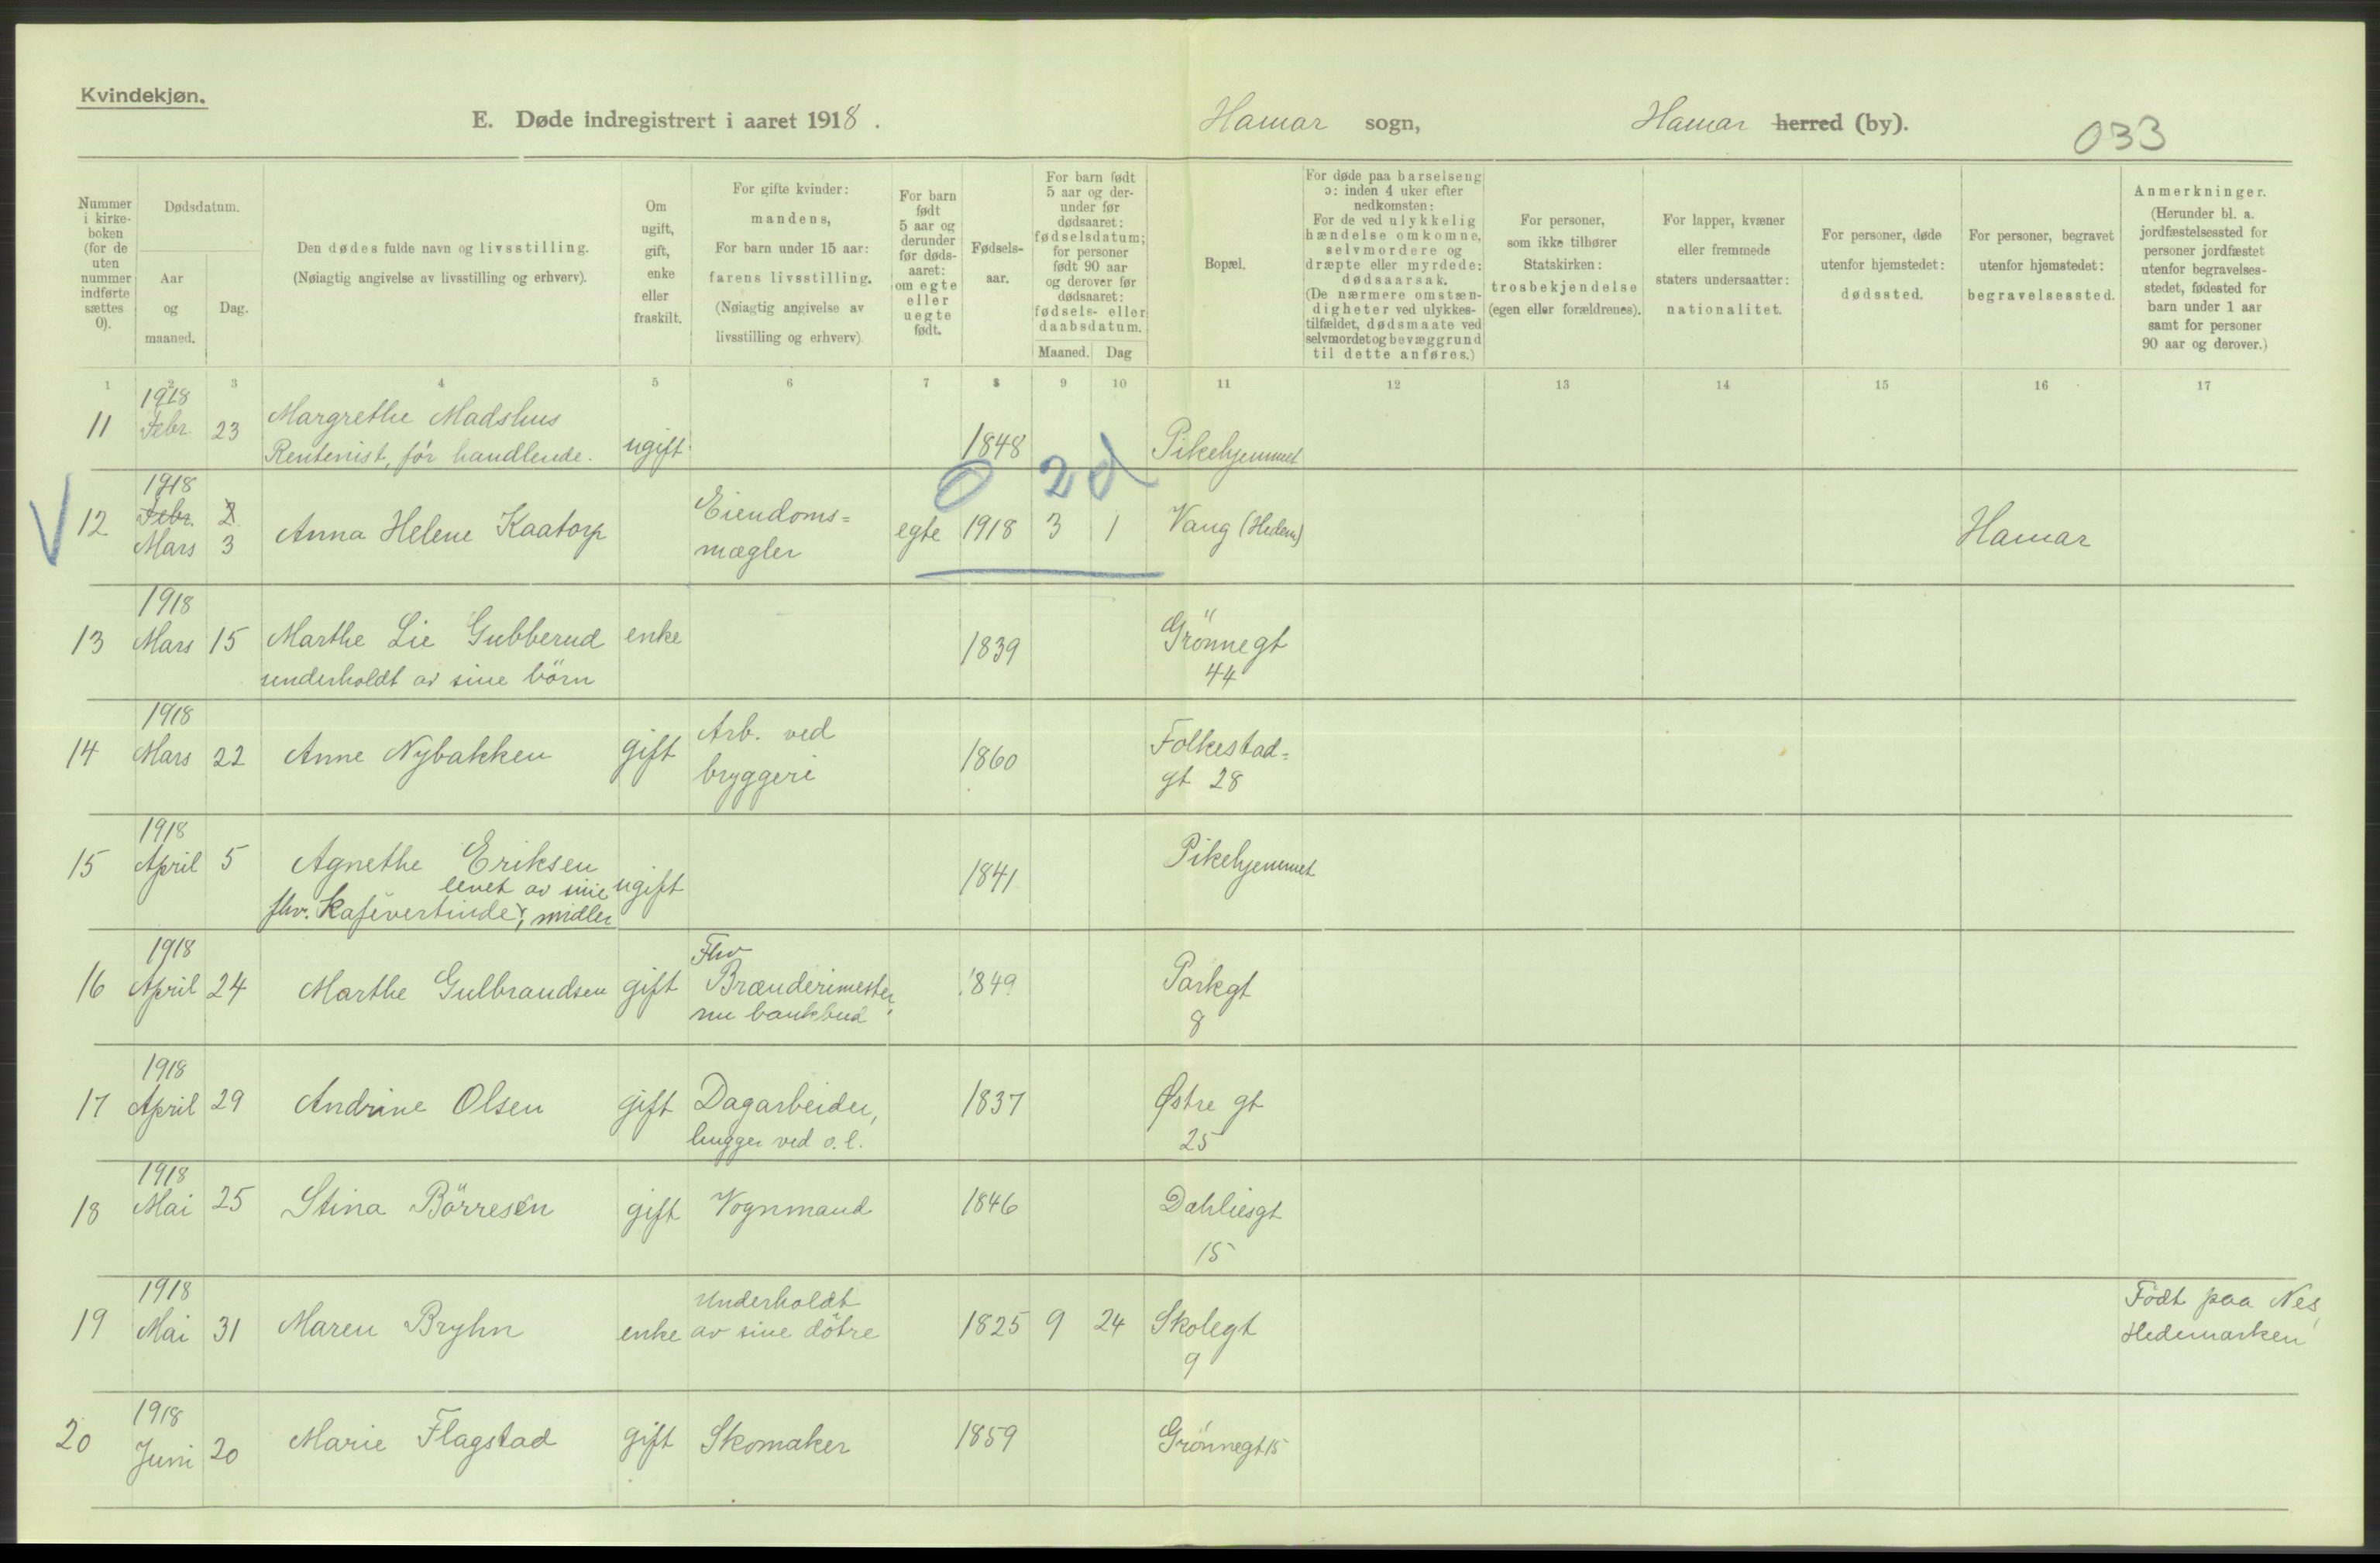 Kvindekjøn.
E. Døde indregistrert i aaret 1918.
Hamar sogn,
Hamar herred (by).
033
Nummer i kirke-boken (for de uten nummer indførte sættes 0).
Dødsdatum.
Aar og maaned.
Dag.
Den dødes fulde navn og livsstilling.
(Nøiagtig angivelse av livsstilling og erhverv).
Om ugift, gift, enke eller fraskilt.
For gifte kvinder:
mandens,
For barn under 15 aar:
farens livsstilling.
(Nøiagtig angivelse av
livsstilling og erhverv)
For barn født 5 aar og derunder før døds-aaret: om egte eller uegte født.
Fødsels-aar.
For barn født 5 aar og der-under før dødsaaret: fødselsdatum; for personer født 90 aar og derover før dødsaaret: fødsels- eller daabsdatum.
Maaned.
Dag
Bopæl.
For døde paa barselseng
ɔ: inden 4 uker efter
nedkomsten:
For de ved ulykkelig
hændelse omkomne,
selvmordere og
dræpte eller myrdede:
dødsaarsak.
(De nærmere omstæn-
digheter ved ulykkes-
tilfældet, dødsmaate ved
selvmordet og bevæggrund
til dette anføres.)
For personer,
som ikke tilhører
Statskirken:
trosbekjendelse
(egen eller forældrenes).
For lapper, kvæner
eller fremmede
staters undersaatter:
nationalitet.
For personer, døde
utenfor hjemstedet:
dødssted.
For personer, begravet
utenfor hjemstedet:
begravelsessted.
Anmerkninger.
(Herunder bl. a.
jordfæstelsessted for
personer jordfæstet
utenfor begravelses-
stedet, fødested for
barn under 1 aar
samt for personer
90 aar og derover.)
1 2 3 4 5 6 7 8 9 10 11 12 13 14 15 16 17
1918
11 Febr. 23 Margrethe Madshus
Rentenist, før handlende. ugift 1848 Pikehjemmet
0 2 d
1918
12 Febr. 2 Mars 3 Anna Helene Kaatorp Eiendoms=
mægler egte 1918 3 1 Vang (Hedem) Hamar
1918
13 Mars 15 Marthe Lie Gubberud enke 1839 Grönnegt
underholdt av sine börn 44
1918
14 Mars 22 Anne Nybakken gift Arb. ved
bryggeri 1860 Folkestad=
gt 28
1918
15 April 5 Agnethe Eriksen ugift 1841 Pikehjemmet
levet av sine
fhv. kafévertinde, midler
1918
16 April 24 Marthe Gulbrandsen gift Fhv
Brænderimester,
nu bankbud 1849 Parkgt
8
1918
17 April 29 Andrine Olsen gift Dagarbeider,
hugger ved o.l. 1837 Østre gt
25
1918
18 Mai 25 Stina Börresen gift Vognmand 1846 Dahliesgt
15
1918
19 Mai 31 Maren Bryhn enke Underholdt
av sine døtre 1825 9 24 Skolegt
9
Födt paa Nes,
Hedemarken
1918
20 Juni 20 Marie Flagstad gift Skomaker 1859 Grönnegt 15